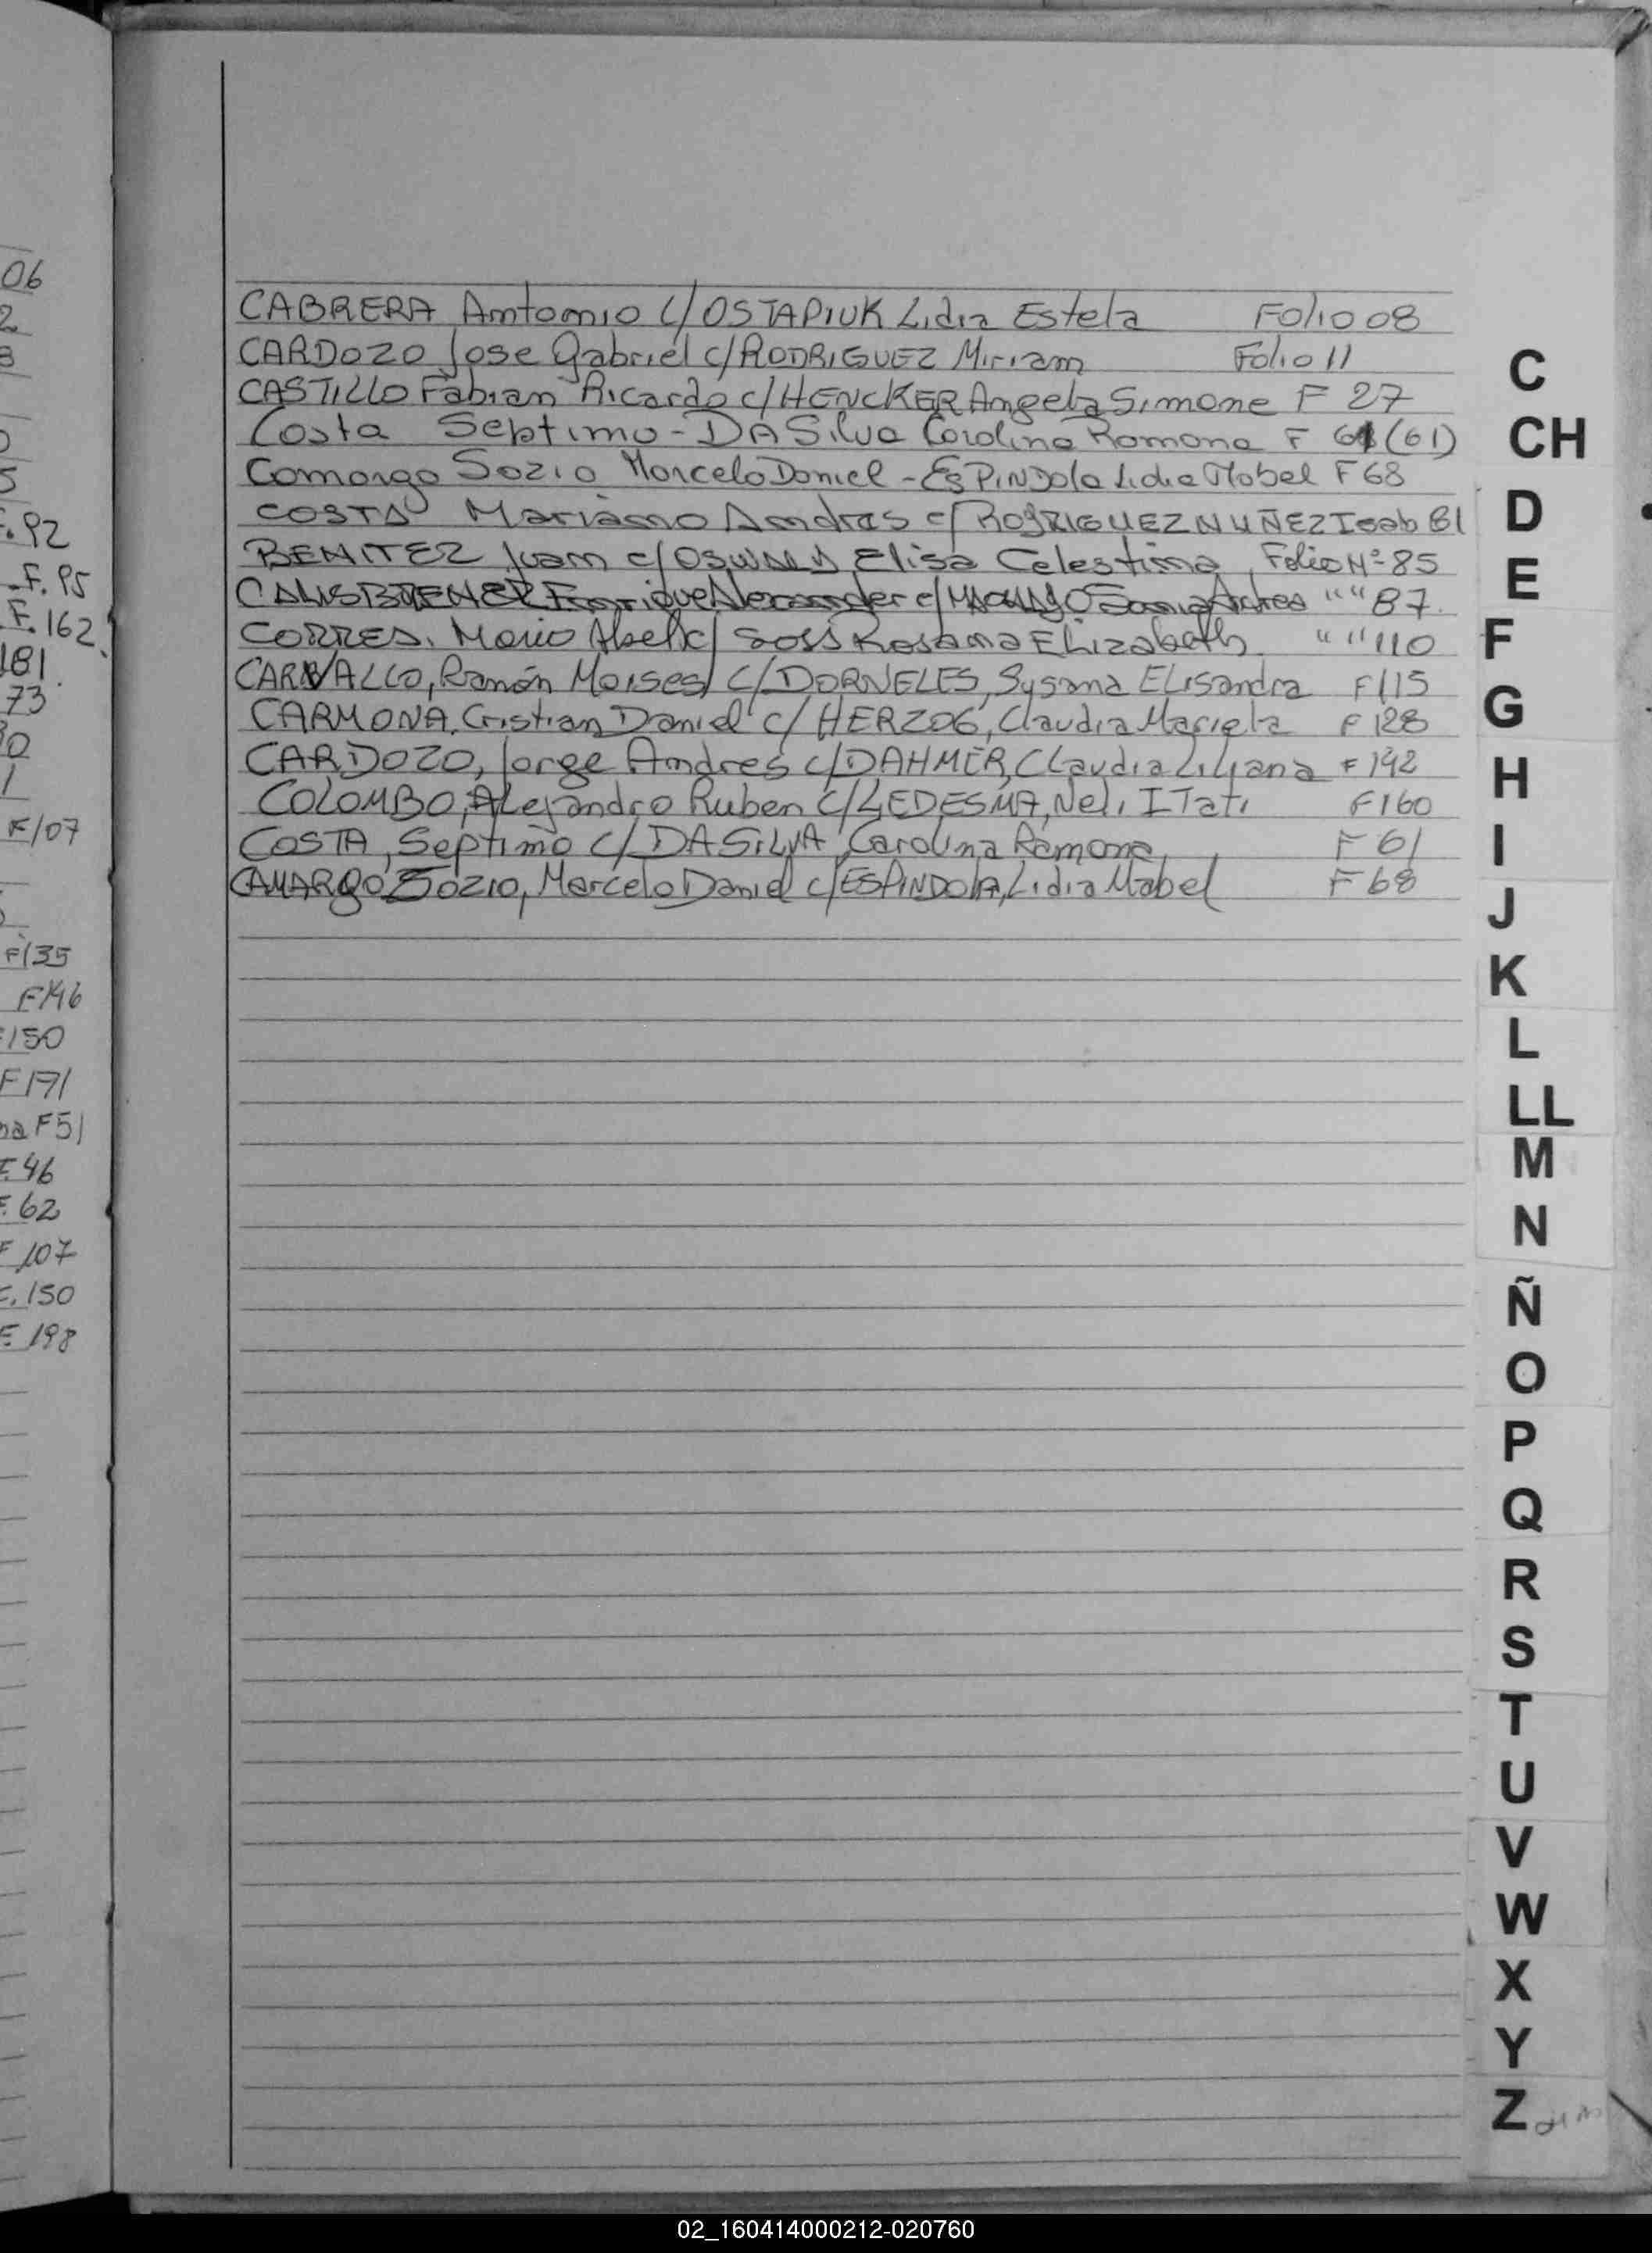 06
2
3
5
F. 92
F. 95
F. 162
181
73
0
1
F107
F135
F146
150
F171
na F51
F. 46
F. 62
F 107
F. 150
F. 198
CABRERA Antonio C/OSTAPIUK Lidia Estela Folio 08
CARDOZO Jose Gabriel c/RODRIGUEZ Miriam Folio 11
CASTILLO Fabian Ricardo c/HENCKER Angela Simone F 27
Costa Septimo-DASilva Carolina Ramona F 61 (61)
Camargo Sozio Marcelo Daniel-EsPINDola Lidia Mabel F 68
COSTA Mariano Andres c/ RODRIGUEZ NUÑEZ Isab 81
BENITEZ Juan c/ Elisa Celestina Folio Nº 85
Enrique Alexander c/ " " 87.
CORREA. Mario Abel c/ Rosana Elizabeth " " 110
CARVALLO, Ramón Moises C/DORNELES, Susana ELisandra F115
CARMONA, Cristian Daniel c/ HERZOG, Claudia Mariela F 128
CARDOZO, Jorge Andres c/DAHMER, CLaudia Liliana F 142
COLOMBO, ALejandro Ruben C/LEDESMA, Neli ITati F160
COSTA, Septimo C/ DASILVA, Carolina Ramona F 61
CAMARGO SOZIO, Marcelo Daniel c/ESPINDOLA, Lidia Mabel F 68
C
CH
D
E
F
G
H
I
J
K
L
LL
M
N
Ñ
O
P
Q
R
S
T
U
V
W
X
Y
Z
02_160414000212-020760